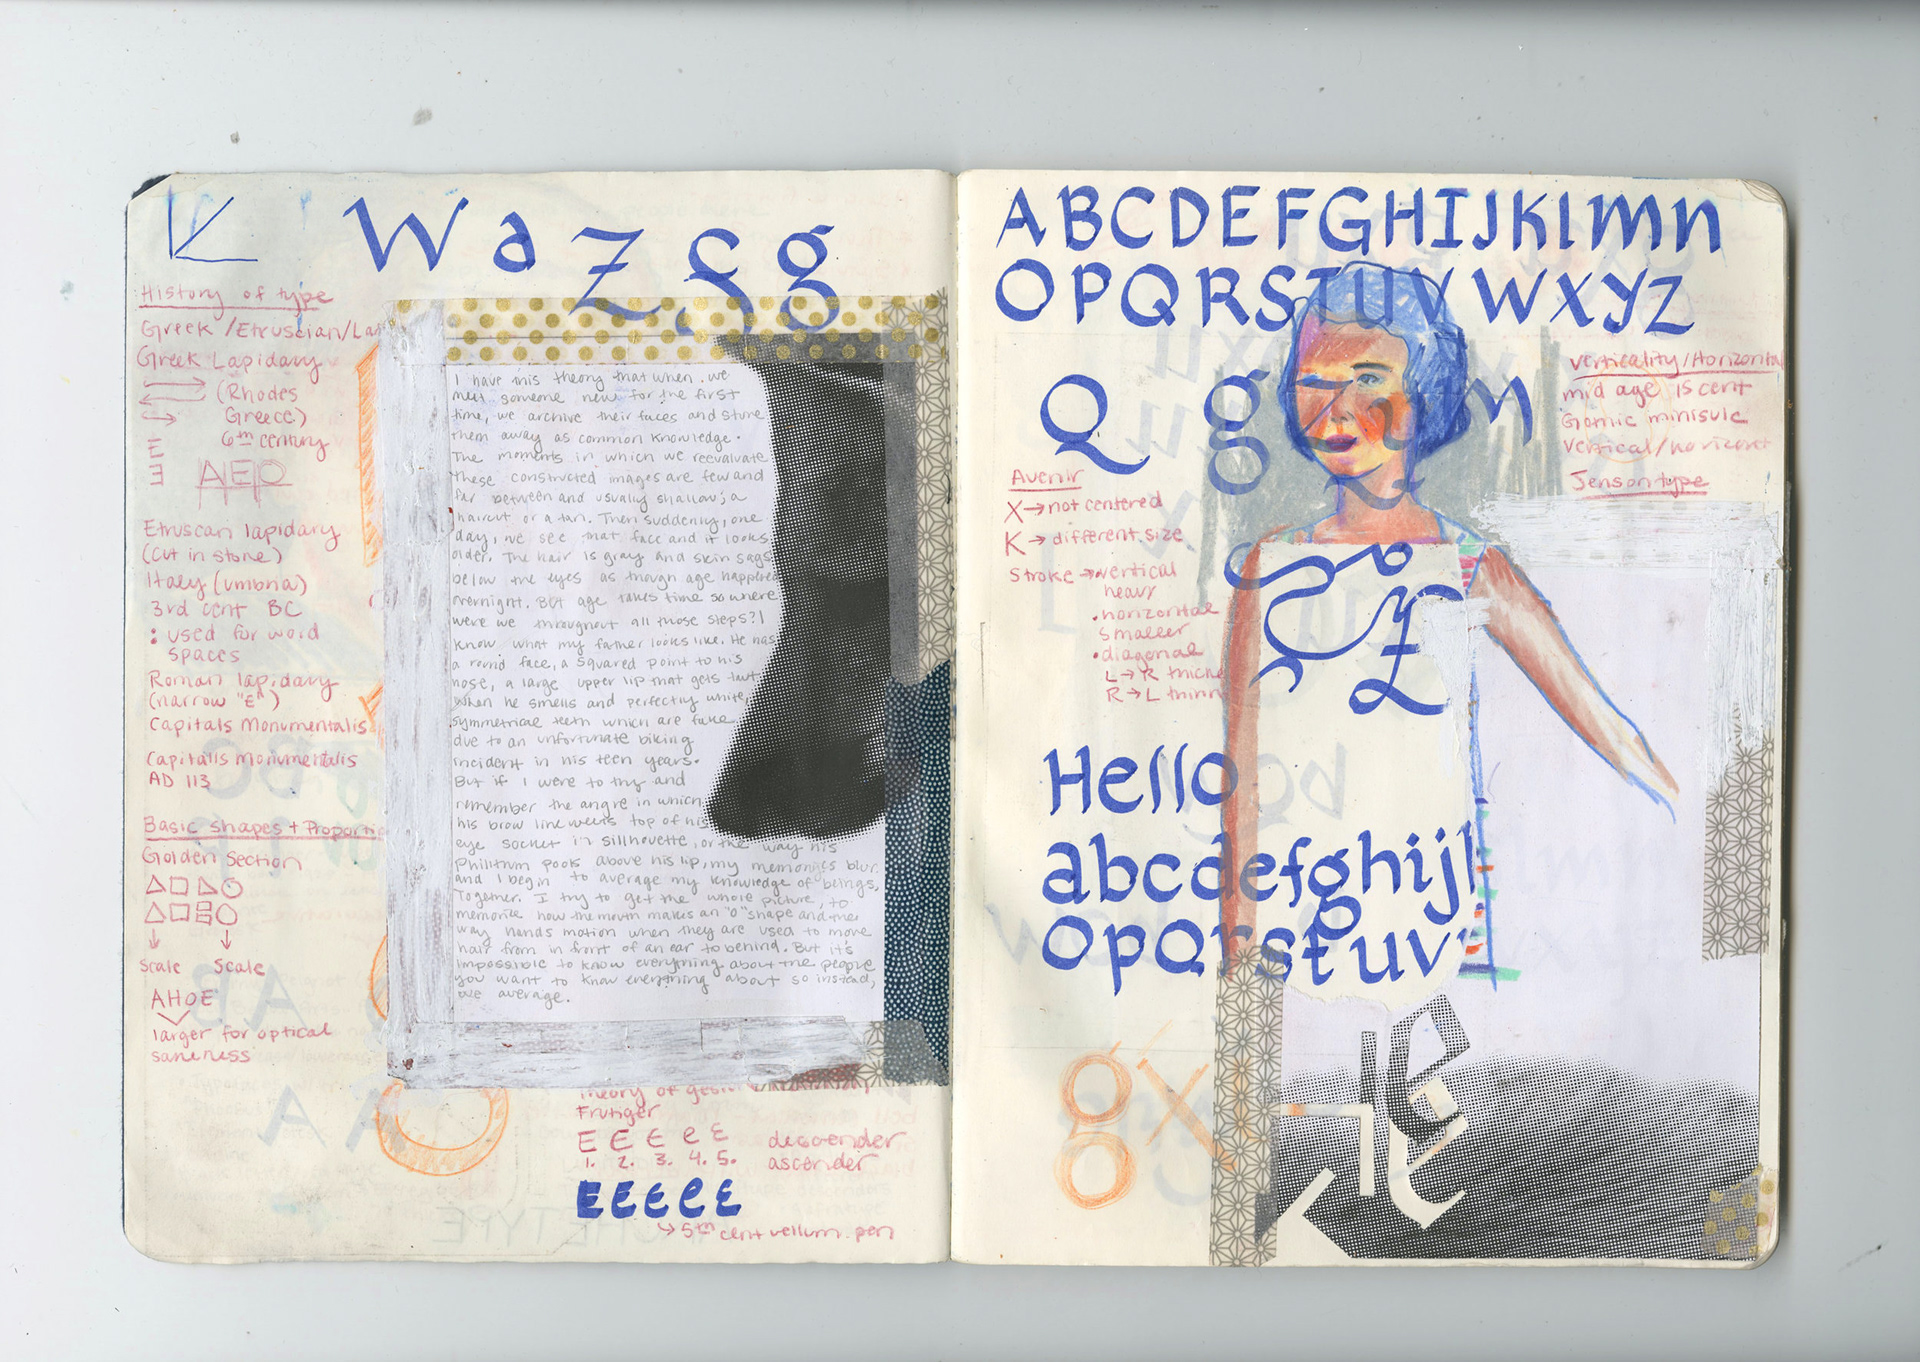 W a Z g g
History of type
Greek/Etruscian/Lat
Greek Lapidary
(Rhodes
Greece)
6th century
E
Ǝ AEP
Etruscan lapidary
(cut in stone)
Italy (umbria)
3rd cent BC
: used for word
spaces
Roman lapidary
(narrow "E")
Capitals Monumentalis
Capitalis Monumentalis
AD 113
Basic shapes + Proportio
Golden Section
Scale Scale
AHOE
larger for optical
sameness
I have this theory that when we
meet someone new for the first
time, we archive their faces and store
them away as common knowledge.
The moments in which we reevaluate
these constructed images are few and
far between and usually shallow; a
haircut or a tan. Then suddenly, one
day, we see that face and it looks
older. The hair is gray and skin sags
below the eyes as though age happened
overnight. But age takes time so where
were we throughout all those steps? I
know what my father looks like. He has
a round face, a squared point to his
nose, a large upper lip that gets taut
when he smells and perfectly white
symmetrical teeth which are fake
due to an unfortunate biking
incident in his teen years.
But if I were to try and
remember the angle in which
his brow line meets top of his
eye socket in sillhouette, or the way his
philltrum pools above his lip, my memories blur
and I begin to average my knowledge of beings,
together. I try to get the whole picture, to
memorize how the mouth makes an "O" shape and the
way hands motion when they are used to move
hair from in front of an ear to behind. But it's
impossible to know everything about the people
you want to know everything about so instead,
we average.
Theory of
Frutiger
E E E e ε descender
1. 2. 3. 4. 5. ascender
E E E e ε
↳ 5th cent vellum pen
ABCDEFGHIJKlmn
OPQRSTUVWXYZ
Q g Z m
verticality/Horizontal
mid age 15 cent
Gothic miniscule
vertical/horizont
Jenson type
Avenir
X → not centered
K → different size
Stroke → vertical
heavy
• horizontal
smaller
• diagonal
L → R thicke
R → L thinn
Hello
abcdefghijl
opqrstuv
g x